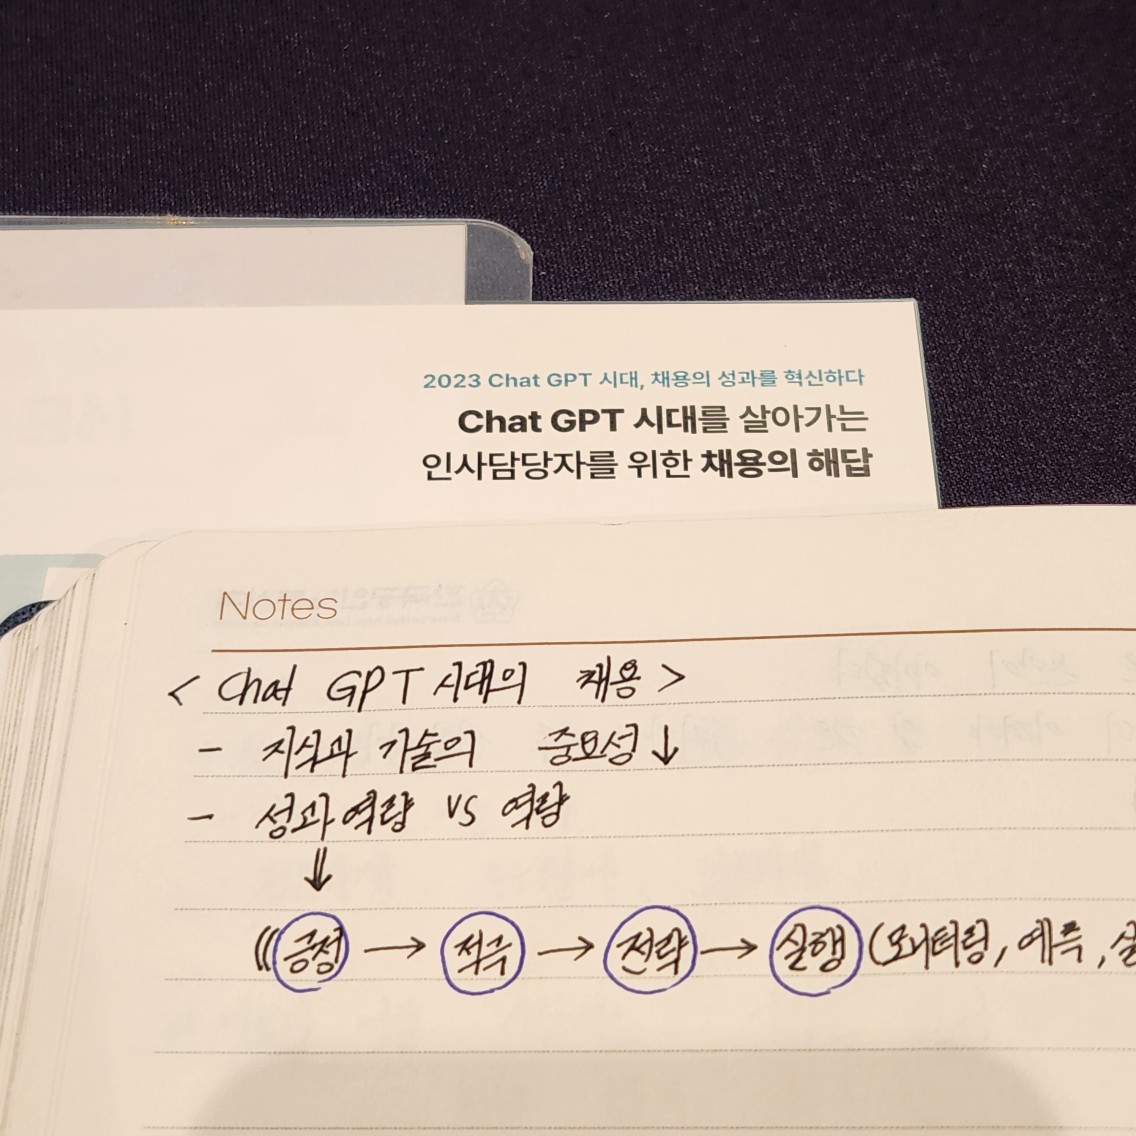 2023 Chat GPT 시대, 채용의 성과를 혁신하다
Chat GPT 시대를 살아가는
인사담당자를 위한 채용의 해답
Notes
< Chat GPT 시대의 채용 >
- 지식과 기술의 중요성↓
- 성과역량 vs 역량
⇓
(((긍정 → 적극 → 전략 → 실행 (모니터링, 예측,